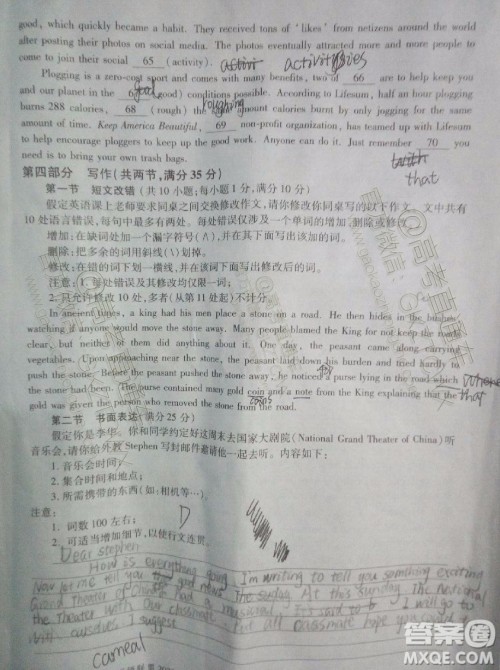 good, which quickly became a habit. They received tons of 'likes' from netizens around the world
after posting their photos on social media. The photos eventually attracted more and more people to
come to join their social 65 (activity). activities
Plogging is a zero-cost sport and comes with many benefits, two of 66 are to help keep you
and our planet in the 67 (good) conditions possible. According to Lifesum, half an hour plogging
burns 288 calories, 68 (rough) the amount calories burnt by only jogging for the same
amount of time. Keep America Beautiful, 69 non-profit organization, has teamed up with Lifesum
to help encourage ploggers to keep up the good work. Anyone can do it. Just remember 70 you
need is to bring your own trash bags.
that
第四部分 写作(共两节,满分35分)
第一节 短文改错(共10小题;每小题1分,满分10分)
假定英语课上老师要求同桌之间交换修改作文,请你修改你同桌写的以下作文。文中共有
10处语言错误,每句中最多有两处。每处错误仅涉及一个单词的增加、删除或修改。
增加:在缺词处加一个漏字符号(∧),并在其下面写出该加的词。
删除:把多余的词用斜线(\)划掉。
修改:在错的词下划一横线,并在该词下面写出修改后的词。
注意:1.每处错误及其修改均仅限一词;
2.只允许修改10处,多者(从第11处起)不计分。
In ancient times, a king had his men place a stone on a road. He then hides in the bushes,
watching if anyone would move the stone away. Many people blamed the King for not keeping the roads
clear, but neither of them did anything about it. One day, the peasant came along carrying
vegetables. Upon approaching near the stone, the peasant laid down his burden and tried hardly to
push the stone. Before the peasant pushed the stone away, he noticed a purse lying in the road which
the stone had been. The purse contained many gold coin and a note from the King explaining that the
gold was given the person who removed the stone from the road.
coins
that
第二节 书面表达(满分25分)
假定你是李华。你和同学约定好这周末去国家大剧院(National Grand Theater of China)听
音乐会,请你给外教Stephen写封邮件邀请他一起去听。内容如下:
1. 音乐会时间;
2. 集合时间和地点;
3. 所需携带的东西(如:相机等…)。
注意:
1. 词数100左右;
2. 可适当增加细节,以使行文连贯。
D
Dear Stephen
How is everything going I'm writing to tell you something exciting
Now let me tell you good news The Sunday At this sunday The National
Grand Theater of Chinese had a
the Theater with Our classmate I will go to
With ourselves I suggest all classmate hope you
cameal
@高考直通车
答案圈
MXQE.COM